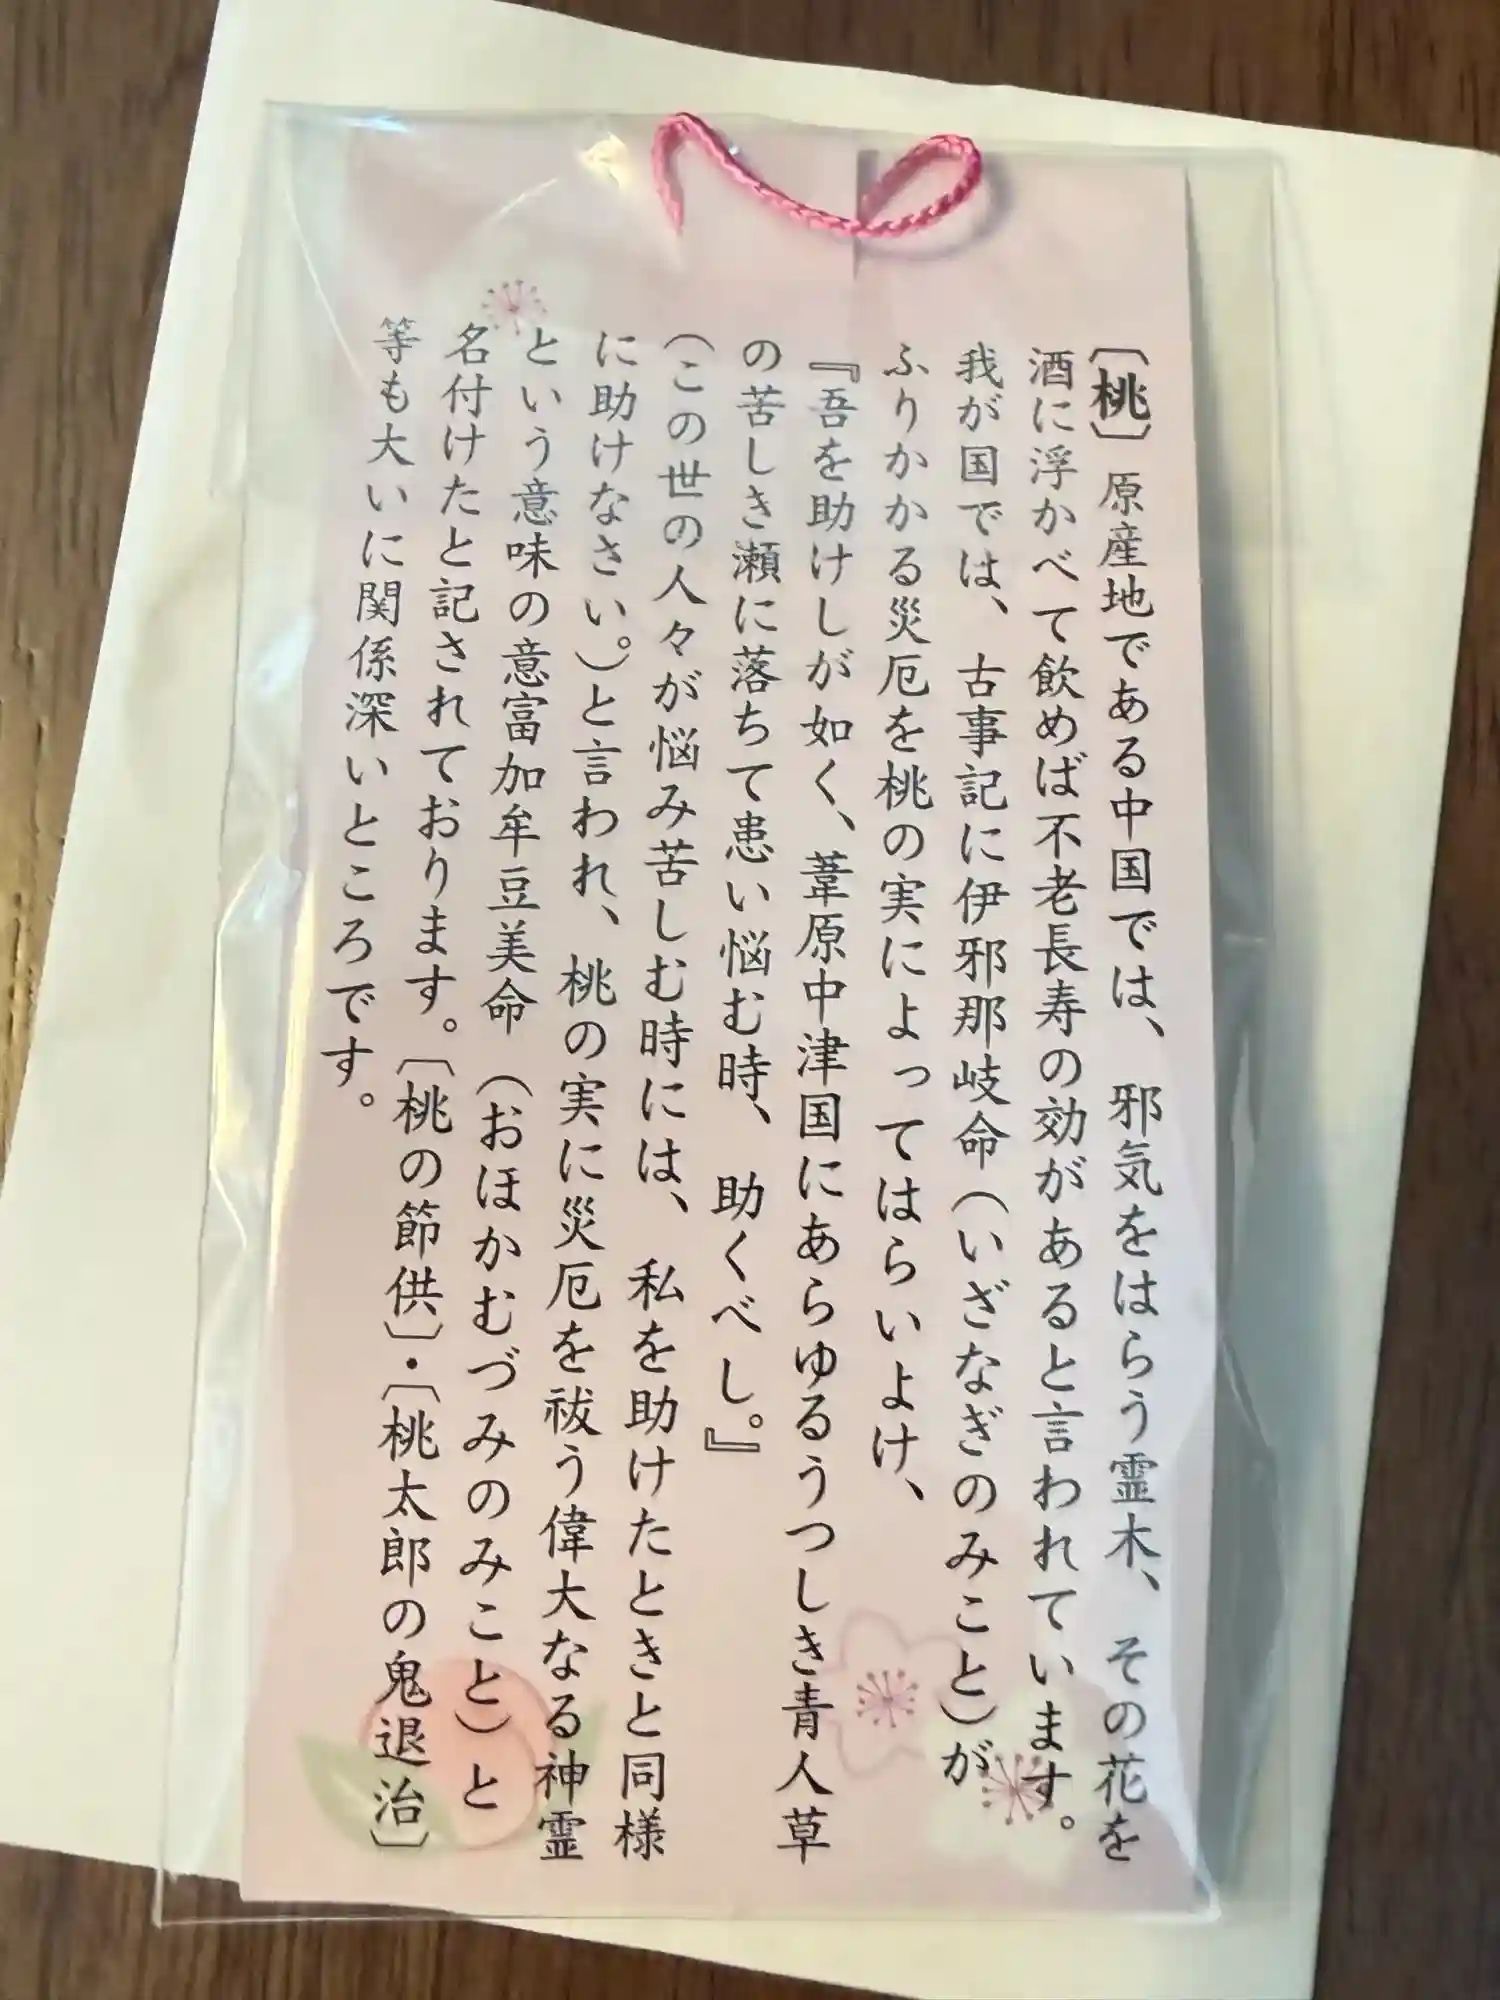 〔桃〕原産地である中国では、邪気をはらう霊木、その花を
酒に浮かべて飲めば不老長寿の効があると言われています。
我が国では、古事記に伊邪那岐命（いざなぎのみこと）が
ふりかかる災厄を桃の実によってはらいよけ、
『吾を助けしが如く、葦原中津国にあらゆるうつしき青人草
の苦しき瀬に落ちて患い悩む時、助くべし。』
（この世の人々が悩み苦しむ時には、私を助けたときと同様
に助けなさい。）と言われ、桃の実に災厄を祓う偉大なる神霊
という意味の意富加牟豆美命（おほかむづみのみこと）と
名付けたと記されております。〔桃の節供〕・〔桃太郎の鬼退治〕
等も大いに関係深いところです。